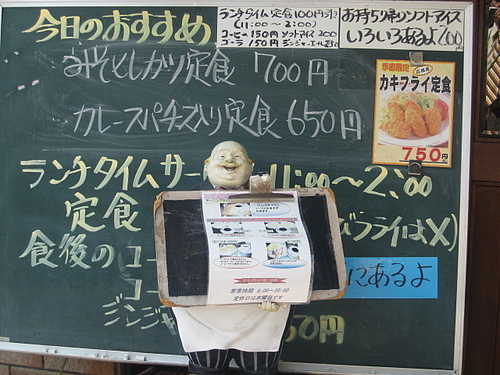 今日のおすすめ
ランチタイム定食100円引
(11:00～2:00)
コーヒー150円 ソフトアイス200
コーラ150円
お持ち帰りソフトアイス
いろいろあるよ200
みそとじカツ定食 700円
カレースパチーズ入り定食 650円
季節限定
カキフライ定食
750円
ランチタイムサー 11:00～2:00
定食 びフライはX)
食後の コー
コー
ジンジャ 50円
にあるよ
営業時間 6:00～20:00
定休日は木曜日です